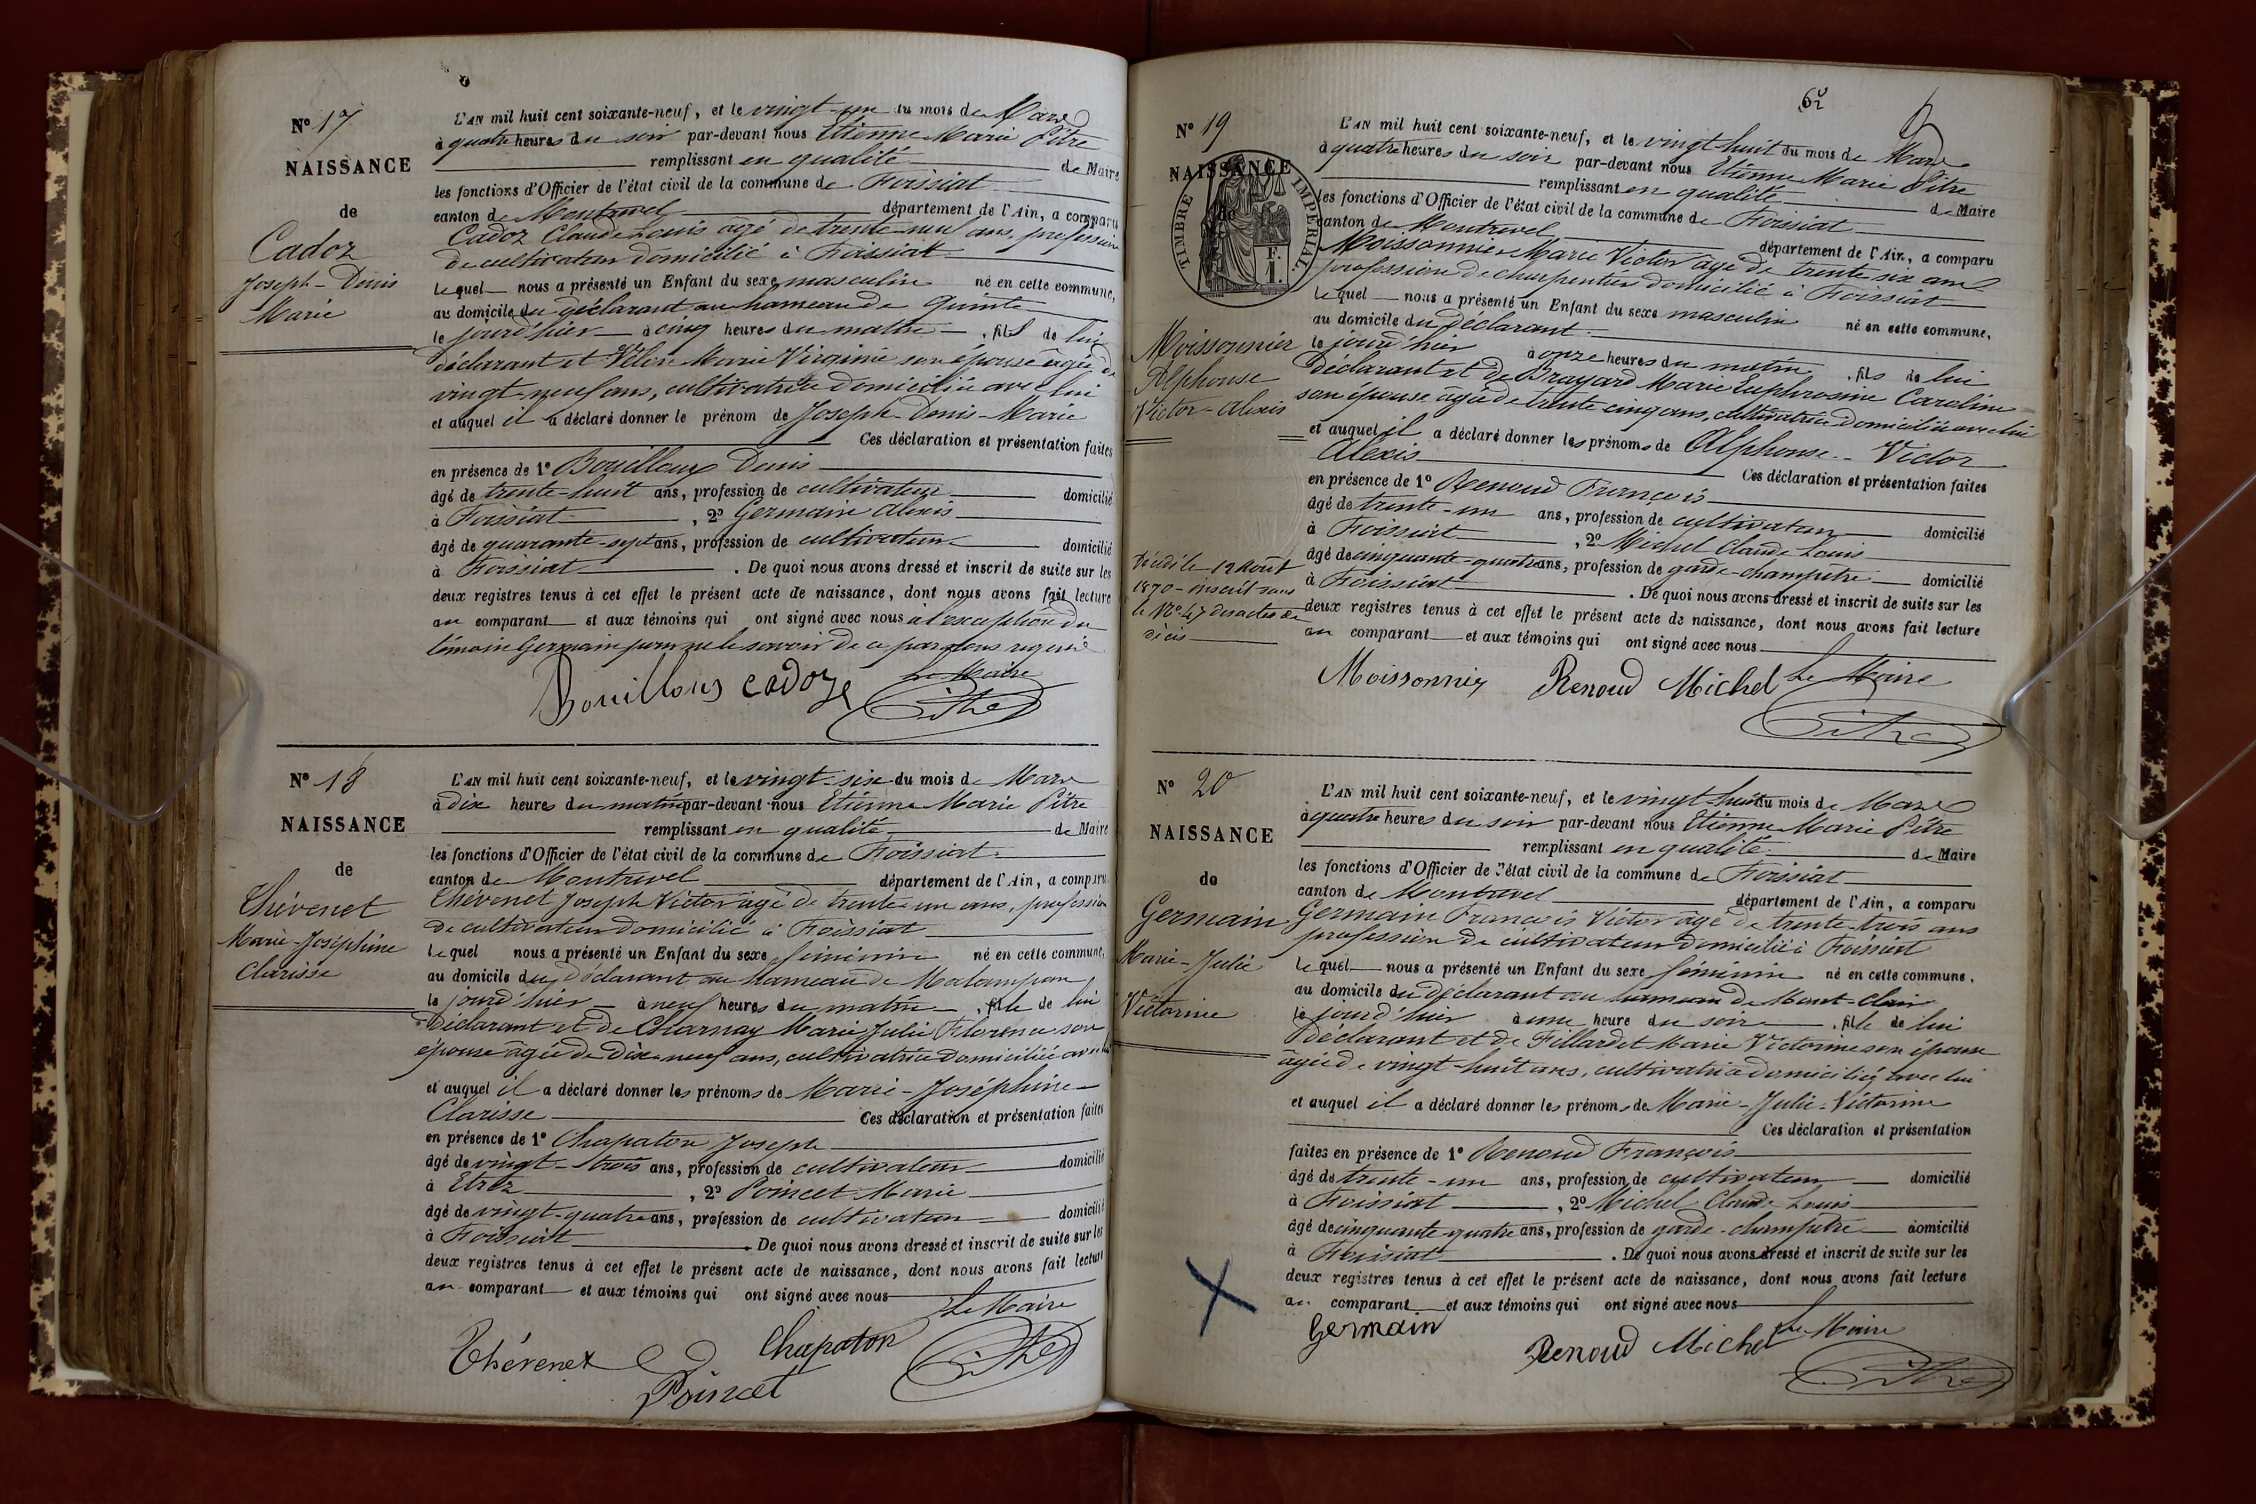 N° 17
NAISSANCE
de
Cadoz
Joseph-Denis
Marie
L'AN mil huit cent soixante-neuf, et le vingt-un du mois de Mars
à quatre heures du soir par-devant nous Etienne Marie Pitre
remplissant en qualité de Maire
les fonctions d'Officier de l'état civil de la commune de Foissiat
canton de Montrevel département de l'Ain, a comparu
Cadoz Claude Louis âgé de trente-neuf ans, profession
de cultivateur domicilié à Foissiat
lequel nous a présenté un Enfant du sexe masculin né en cette commune,
au domicile du déclarant au hameau de
le jourd'hier à cinq heures du matin, fils de lui
déclarant et Marie Virginie son épouse âgée de
vingt-neuf ans, cultivatrice domiciliée avec lui
et auquel il a déclaré donner le prénom de Joseph-Denis-Marie
Ces déclaration et présentation faites
en présence de 1° Bouilloux Denis
âgé de trente-huit ans, profession de cultivateur domicilié
à Foissiat, 2° Germain Alexis
âgé de quarante-sept ans, profession de cultivateur domicilié
à Foissiat. De quoi nous avons dressé et inscrit de suite sur les
deux registres tenus à cet effet le présent acte de naissance, dont nous avons fait lecture
au comparant et aux témoins qui ont signé avec nous à l'exception du
témoin Germain pour ne le savoir de ce par nous requis
Le Maire
Bouilloux Cadoz Pitre
N° 18
NAISSANCE
de
Thévenet
Marie-Joséphine
Clarisse
L'AN mil huit cent soixante-neuf, et le vingt-six du mois de Mars
à dix heures du matin par-devant nous Etienne Marie Pitre
remplissant en qualité de Maire
les fonctions d'Officier de l'état civil de la commune de Foissiat
canton de Montrevel département de l'Ain, a comparu
Thévenet Joseph Victor âgé de trente-un ans, profession
de cultivateur domicilié à Foissiat
lequel nous a présenté un Enfant du sexe féminin né en cette commune,
au domicile du déclarant au hameau de
le jourd'hier à neuf heures du matin, fille de lui
déclarant et de Charnay Marie Julie Florence son
épouse âgée de dix-neuf ans, cultivatrice domiciliée avec lui
et auquel il a déclaré donner les prénoms de Marie-Joséphine-
Clarisse Ces déclaration et présentation faites
en présence de 1° Chapaton Joseph
âgé de vingt-trois ans, profession de cultivateur domicilié
à Etrez, 2° Poincet Marie
âgé de vingt-quatre ans, profession de cultivateur domicilié
à Foissiat. De quoi nous avons dressé et inscrit de suite sur les
deux registres tenus à cet effet le présent acte de naissance, dont nous avons fait lecture
au comparant et aux témoins qui ont signé avec nous
Le Maire
Thévenet Chapaton Pitre
Poincet
N° 19
NAISSANCE
de
TIMBRE IMPERIAL
F.
1.
Moissonnier
Alphonse
Victor-Alexis
Décédé le 12 Août
1870 - inscrit sous
le N° 47 des actes de
décès
L'AN mil huit cent soixante-neuf, et le vingt-huit du mois de Mars
à quatre heures du soir par-devant nous Etienne Marie Pitre
remplissant en qualité de Maire
les fonctions d'Officier de l'état civil de la commune de Foissiat
canton de Montrevel département de l'Ain, a comparu
Moissonnier Marie Victor âgé de trente six ans
profession de charpentier domicilié à Foissiat
lequel nous a présenté un Enfant du sexe masculin né en cette commune,
au domicile du déclarant
le jourd'hier à onze heures du matin, fils de lui
déclarant et de Brayard Marie Euphrosine Caroline
son épouse âgée de trente cinq ans, cultivatrice domiciliée avec lui
et auquel il a déclaré donner les prénoms de Alphonse-Victor
Alexis Ces déclaration et présentation faites
en présence de 1° Renoud François
âgé de trente-un ans, profession de cultivateur domicilié
à Foissiat, 2° Michel Claude Louis
âgé de cinquante-quatre ans, profession de garde-champêtre domicilié
à Foissiat. De quoi nous avons dressé et inscrit de suite sur les
deux registres tenus à cet effet le présent acte de naissance, dont nous avons fait lecture
au comparant et aux témoins qui ont signé avec nous
Moissonnier Renoud Michel Le Maire
Pitre
N° 20
NAISSANCE
de
Germain
Marie-Julie
Victorine
L'AN mil huit cent soixante-neuf, et le vingt-huit du mois de Mars
à quatre heures du soir par-devant nous Etienne Marie Pitre
remplissant en qualité de Maire
les fonctions d'Officier de l'état civil de la commune de Foissiat
canton de Montrevel département de l'Ain, a comparu
Germain François Victor âgé de trente-trois ans
profession de cultivateur domicilié à Foissiat
lequel nous a présenté un Enfant du sexe féminin né en cette commune,
au domicile du déclarant au hameau de Mont-Clair
le jourd'hier à une heure du soir, fille de lui
déclarant et de Fillardet Marie Victorine son épouse
âgée de vingt-huit ans, cultivatrice domiciliée avec lui
et auquel il a déclaré donner les prénoms de Marie-Julie-Victorine
Ces déclaration et présentation
faites en présence de 1° Renoud François
âgé de trente-un ans, profession de cultivateur domicilié
à Foissiat, 2° Michel Claude Louis
âgé de cinquante-quatre ans, profession de garde-champêtre domicilié
à Foissiat. De quoi nous avons dressé et inscrit de suite sur les
deux registres tenus à cet effet le présent acte de naissance, dont nous avons fait lecture
au comparant et aux témoins qui ont signé avec nous
Germain Renoud Michel Le Maire
Pitre